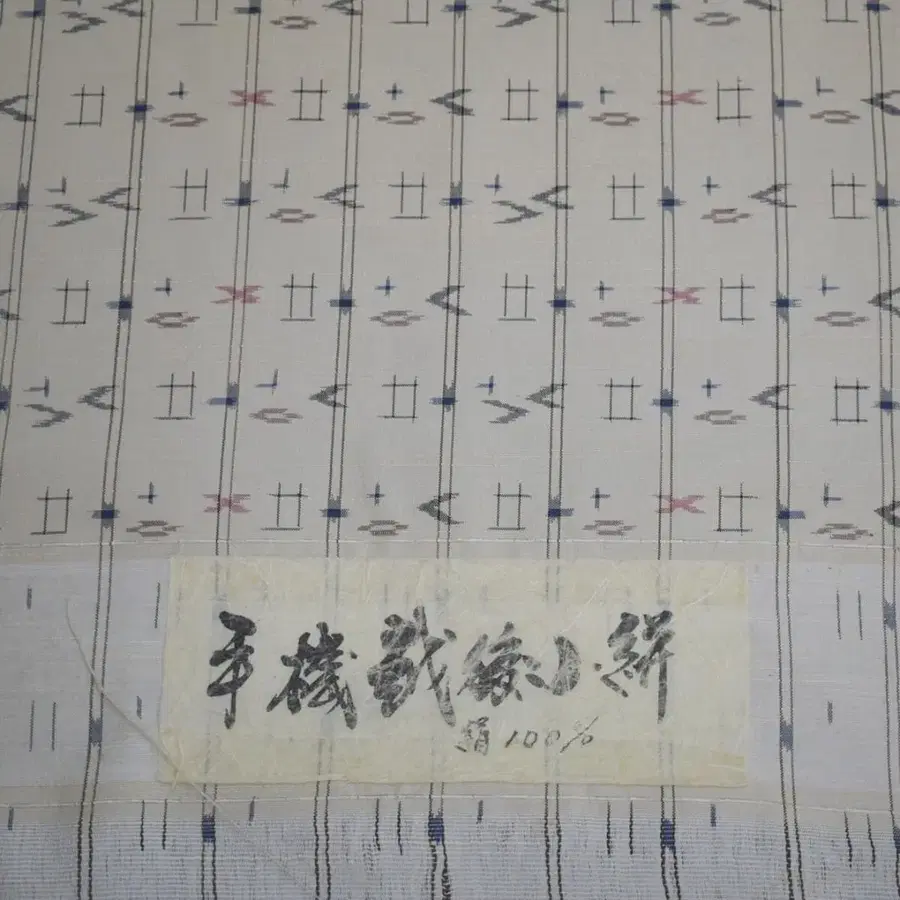 手機織絣
絹100%